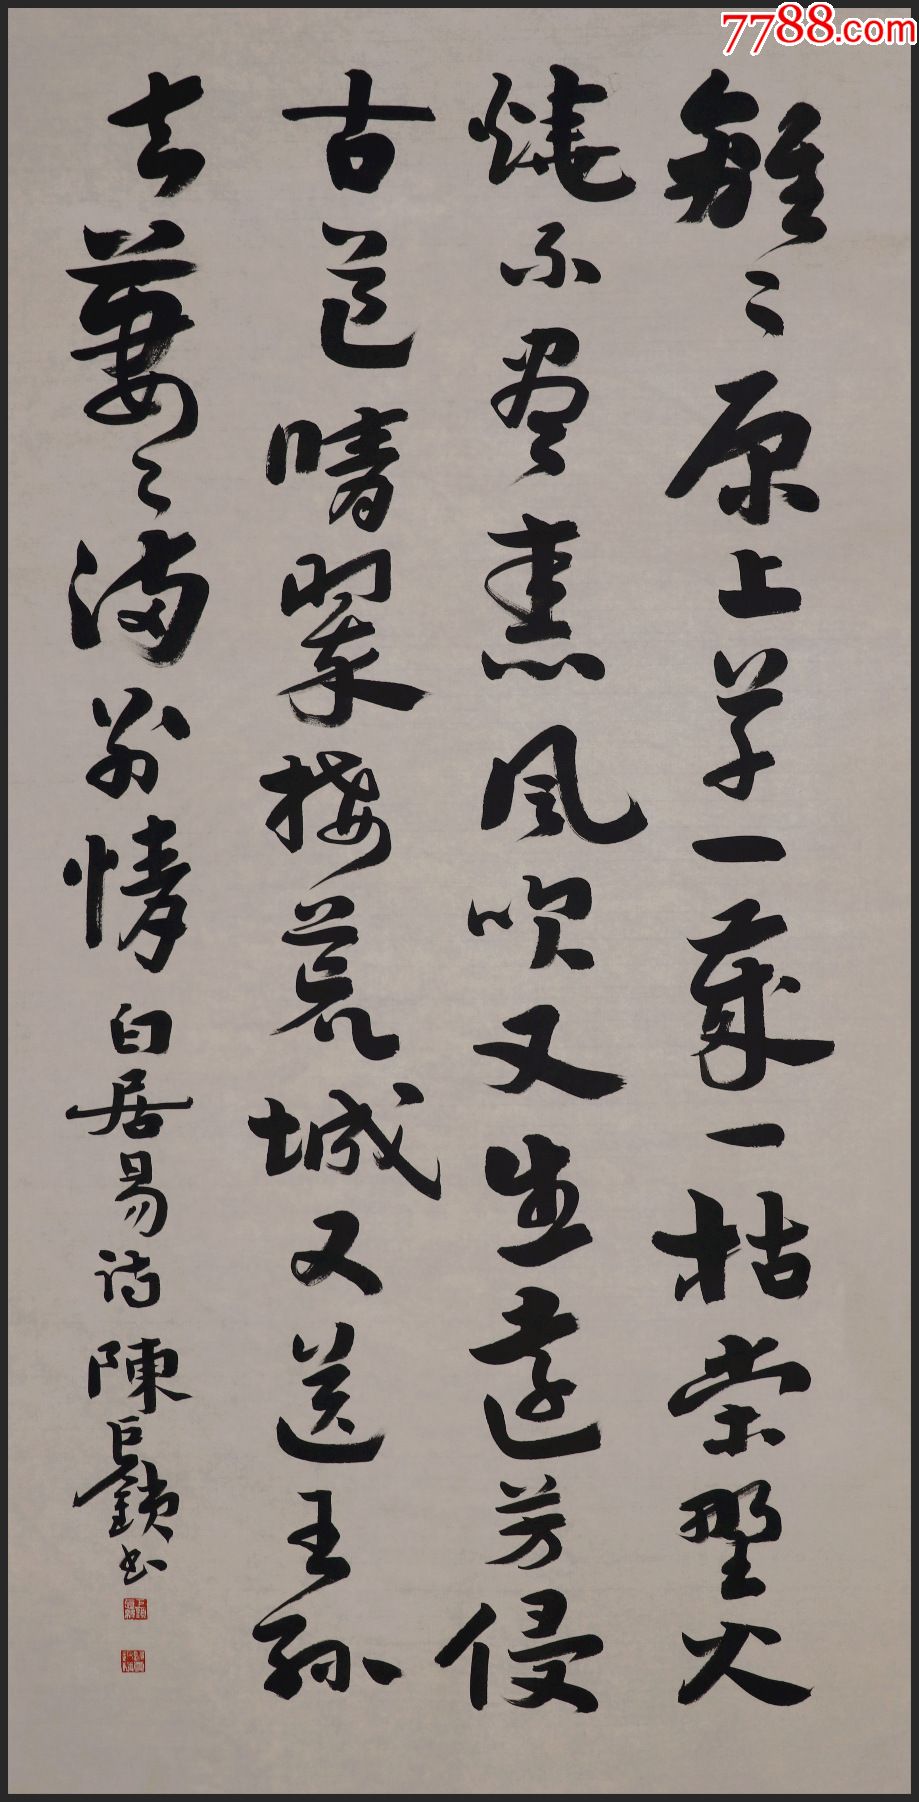 7788.com
離〻原上草一歲一枯榮野火
燒不盡春風吹又生遠芳侵
古道晴翠接荒城又送王孫
去萋〻滿別情 白居易詩 陳巨鎖書